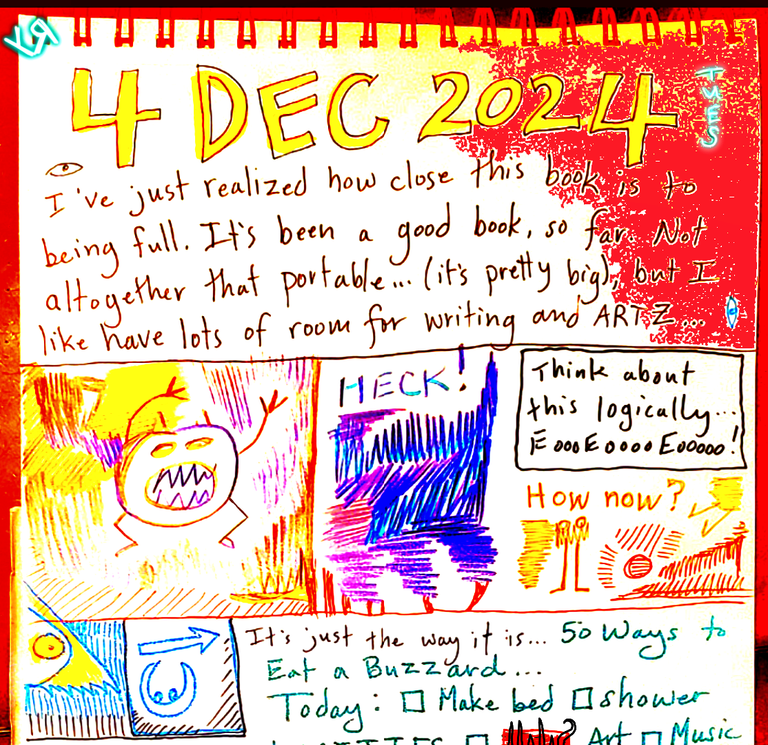 4 DEC 2024
TUES
I've just realized how close this book is to
being full. It's been a good book, so far. Not
altogether that portable... (it's pretty big), but I
like have lots of room for writing and ARTZ...
HECK!
Think about
this logically...
EoooEooooEooooo!
How now?
It's just the way it is... 50 Ways to
Eat a Buzzard...
Today: □ Make bed □ shower
Art □ Music